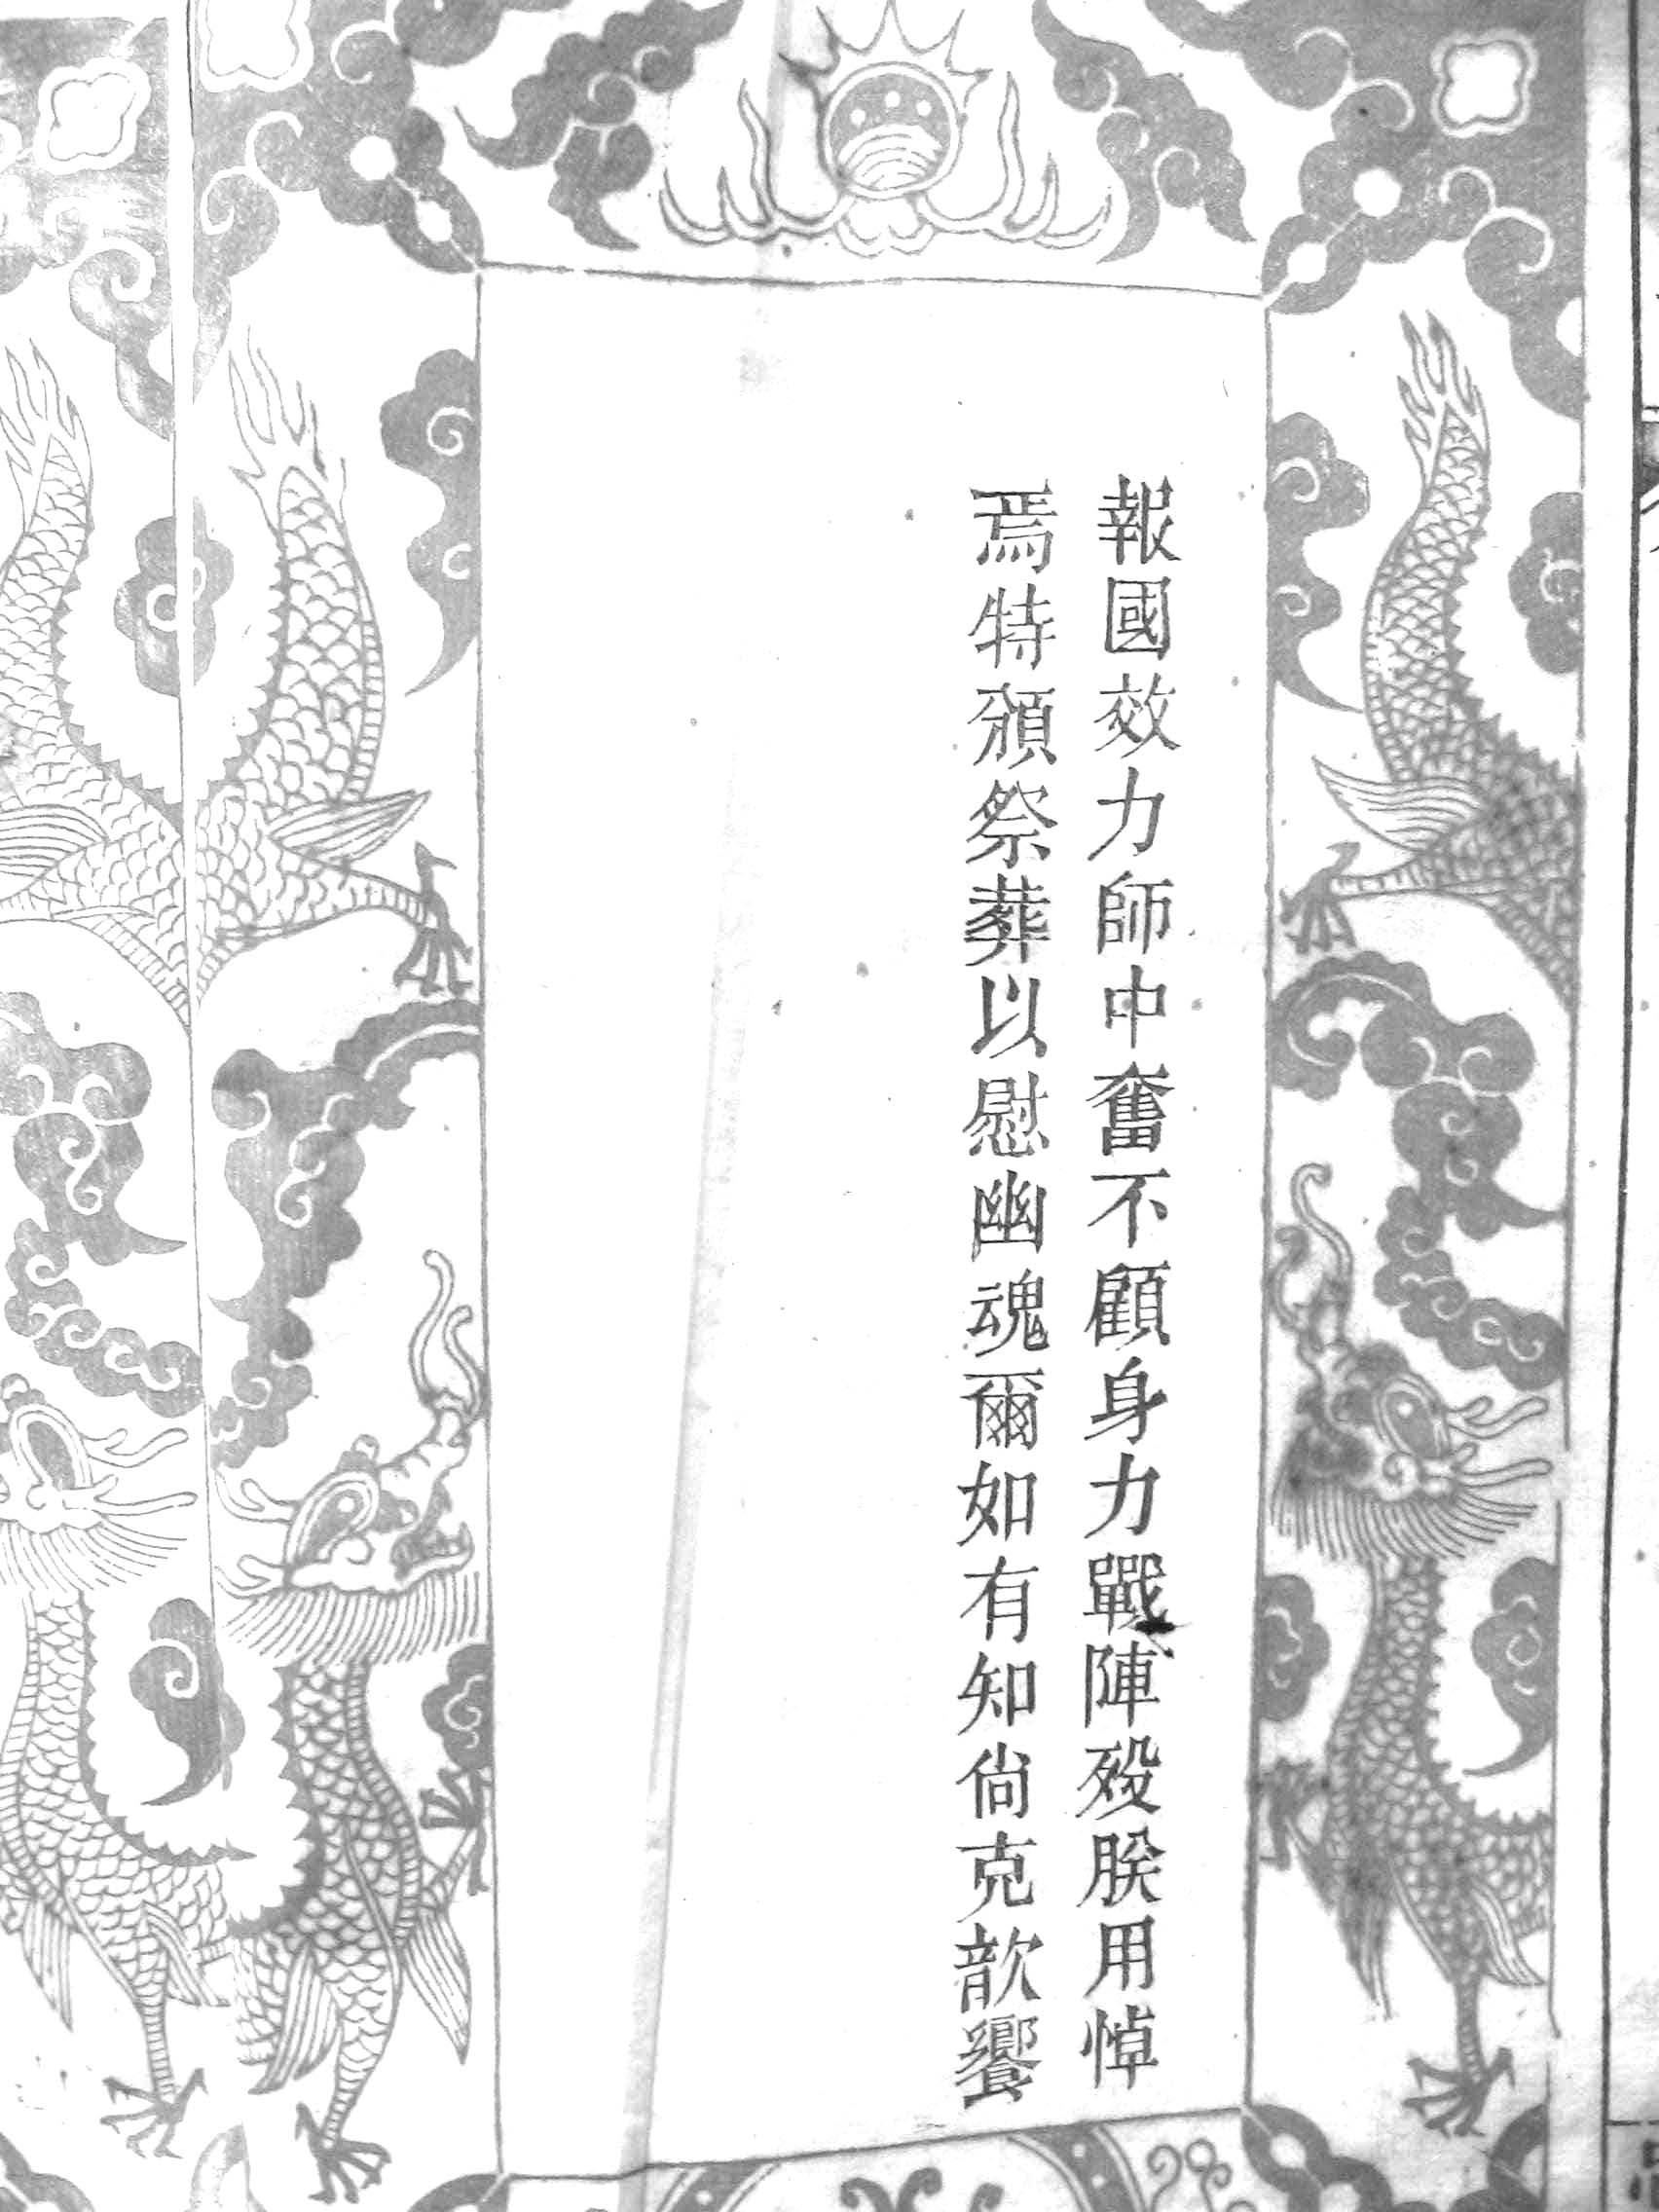 報國效力師中奮不顧身力戰陣歿朕用悼
焉特頒祭葬以慰幽魂爾如有知尚克歆饗